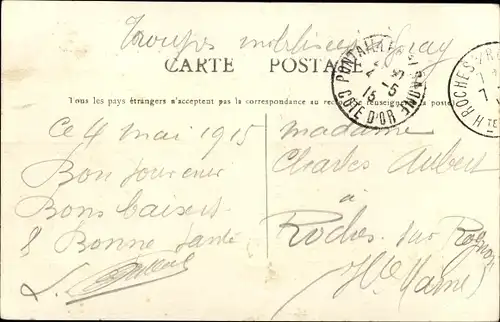 Troupes mobilisées Gray
CARTE POSTALE
Tous les pays étrangers n'acceptent pas la correspondance au recto (se renseigner à la poste)
PONTAILLER-S-SAONE
5
15
COTE D'OR
ROCHES-S-R
Hte
Ce 4 mai 1915
Bon souvenir
Bons baisers
& Bonne Santé
madame
Charles Aubert
à
Roches sur Rognon
Hte Marne